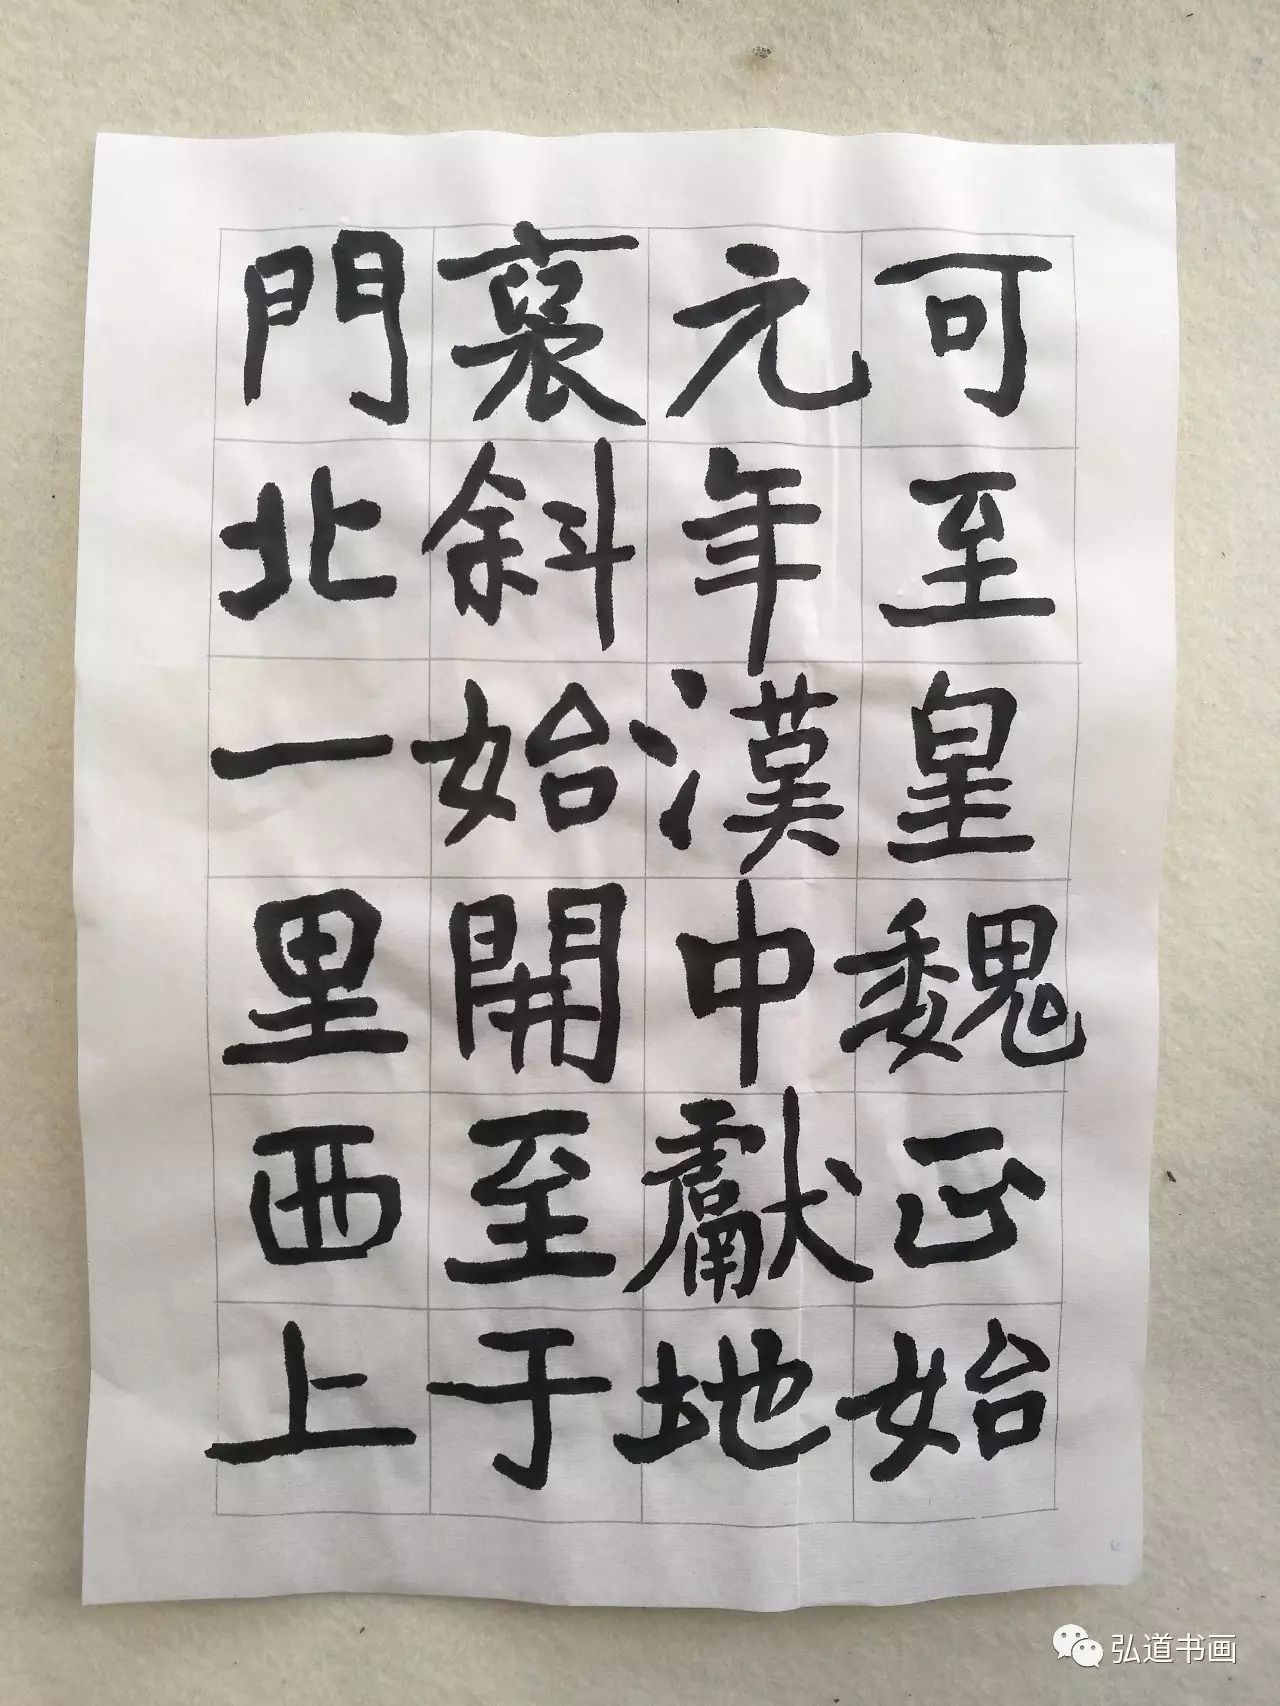 可至皇魏正始
元年漢中獻地
褒斜始開至于
門北一里西上
弘道书画